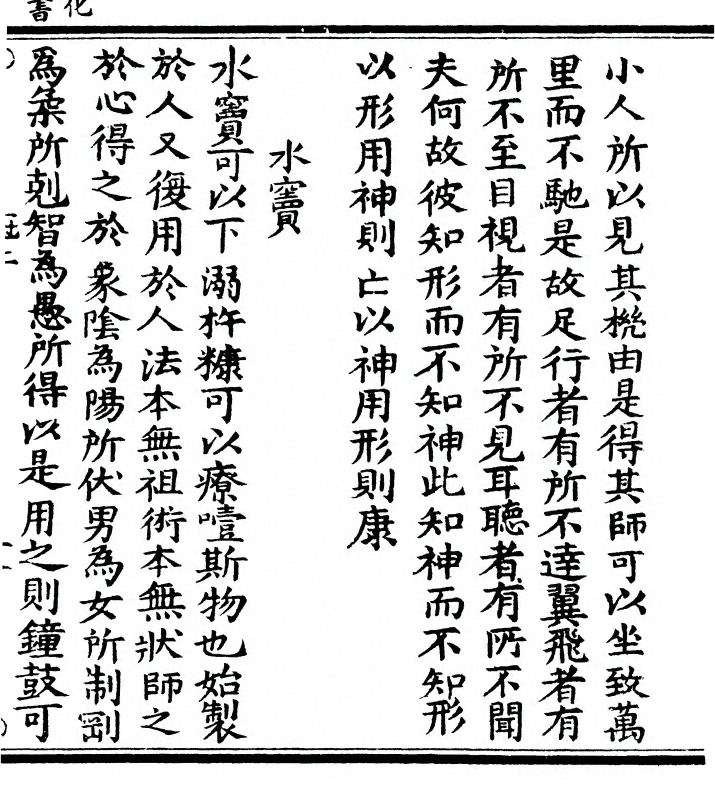 化書
小人所以見其機由是得其師可以坐致萬
里而不馳是故足行者有所不逹翼飛者有
所不至目視者有所不見耳聽者有所不聞
夫何故彼知形而不知神此知神而不知形
以形用神則亡以神用形則康
水竇
水竇可以下溺杵糠可以療噎斯物也始製
於人又復用於人法本無祖術本無狀師之
於心得之於象陰為陽所伏男為女所制剛
爲柔所剋智為愚所得以是用之則鐘鼓可